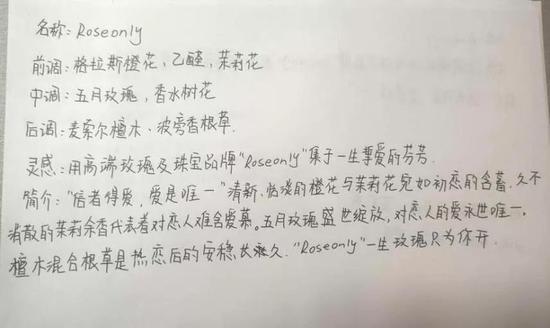 名称：Roseonly
前调：格拉斯橙花，乙醛，茉莉花
中调：五月玫瑰，香水树花
后调：麦索尔檀木、波旁香根草.
灵感：用高端玫瑰及珠宝品牌"Roseonly"集于一生挚爱的芬芳.
简介："信者得爱，爱是唯一"清新、恬淡的橙花与茉莉花宛如初恋的含蓄.久不
消散的茉莉余香代表着对恋人难舍爱慕。五月玫瑰盛世绽放，对恋人的爱永世唯一。
檀木混合根草是热恋后的安稳长久."Roseonly"一生玫瑰只为你开.